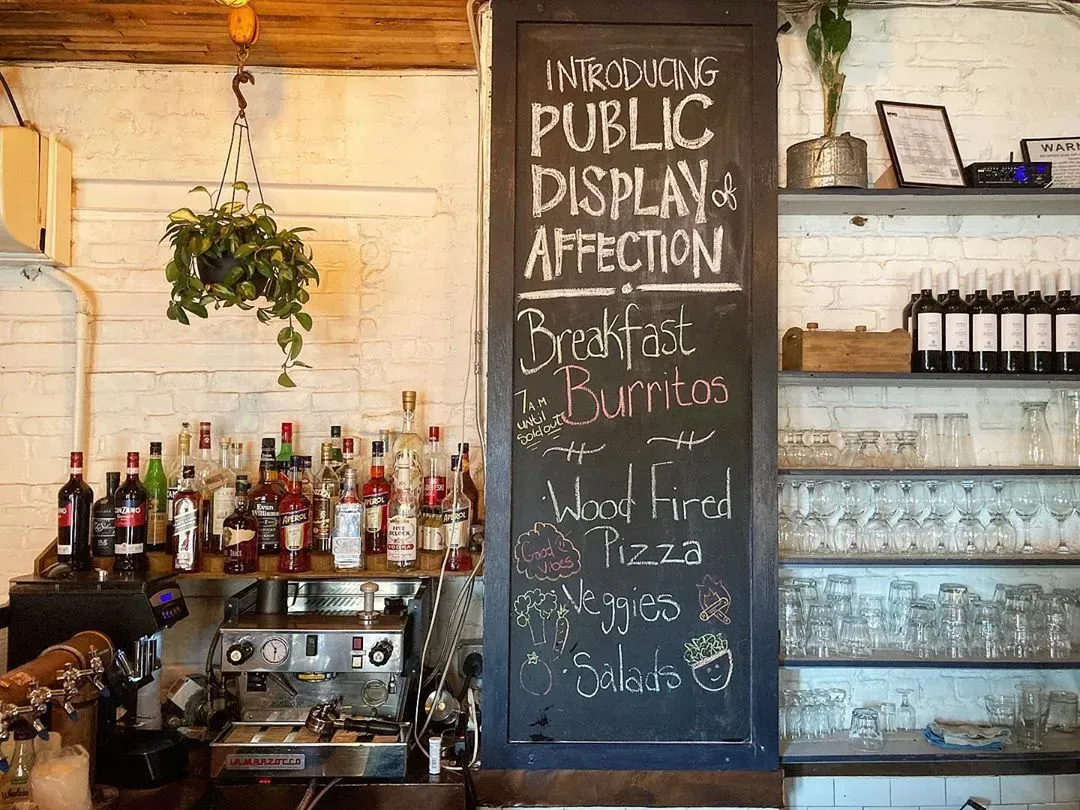 INTRODUCING
PUBLIC
DISPLAY of
AFFECTION
Breakfast
Burritos
7 A.M
UNTIL
Sold out
Wood Fired
Pizza
Good
Vibes
Veggies
Salads
WARN
Evan
Williams
APEROL
FIVE
O'CLOCK
VODKA
APEROL
LA MARZOCCO